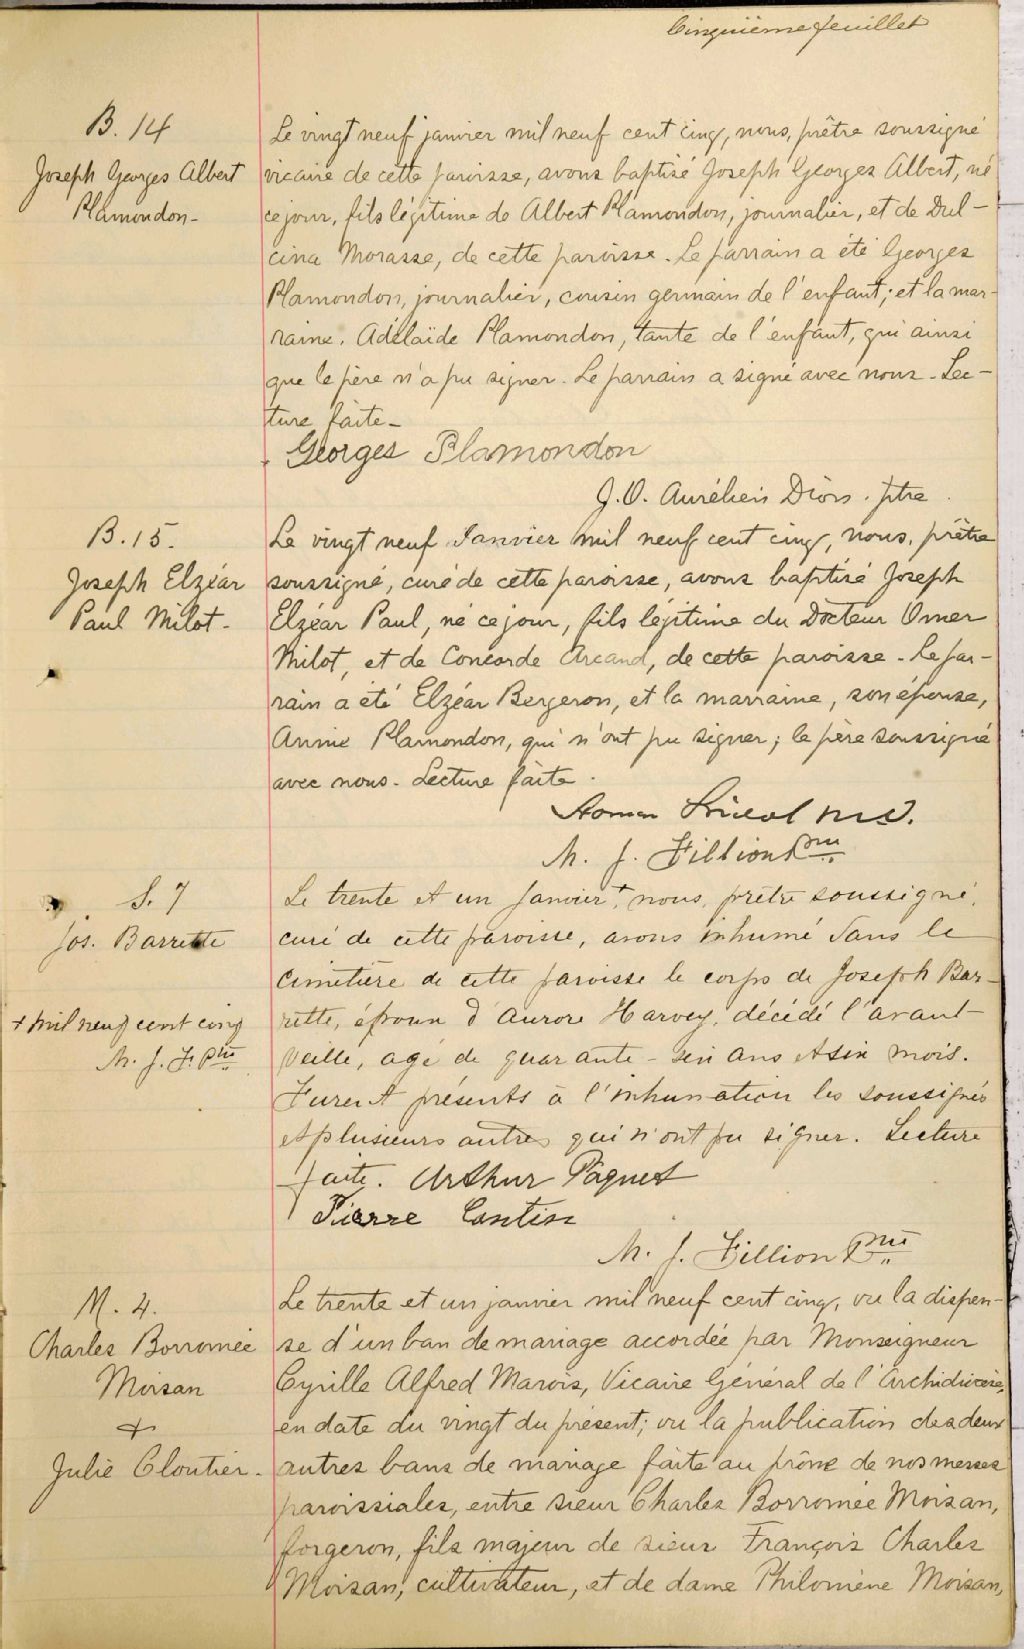 Cinquième feuillet
B. 14
Joseph Georges Albert
Plamondon-
Le vingt neuf janvier mil neuf cent cinq, nous, prêtre soussigné
vicaire de cette paroisse, avons baptisé Joseph Georges Albert, né
ce jour, fils légitime de Albert Plamondon, journalier, et de Dul-
cina Morasse, de cette paroisse. Le parrain a été Georges
Plamondon, journalier, cousin germain de l'enfant; et la mar-
raine, Adélaïde Plamondon, tante de l'enfant, qui ainsi
que le père n'a pu signer. Le parrain a signé avec nous. Lec-
ture faite-
Georges Plamondon
J. O. Aurélien Dion. ptre.
B. 15.
Joseph Elzéar
Paul Milot-
Le vingt neuf Janvier mil neuf cent cinq, nous, prêtre
soussigné, curé de cette paroisse, avons baptisé Joseph
Elzéar Paul, né ce jour, fils légitime du Docteur Omer
Milot, et de Concorde Arcand, de cette paroisse. Le par-
rain a été Elzéar Bergeron, et la marraine, son épouse,
Annie Plamondon, qui n'ont pu signer; le père soussigné
avec nous. Lecture faite.
M.D.
M. J. Fillion Ptre
S. 7
Jos. Barrette
+ mil neuf cent cinq
M. J. F. Ptre
Le trente et un Janvier +, nous, prêtre soussigné,
curé de cette paroisse, avons inhumé dans le
cimetière de cette paroisse le corps de Joseph Bar-
rette, époux d'Aurore Harvey, décédé l'avant-
veille, agé de quarante-six ans et six mois.
Furent présents à l'inhumation les soussignés
et plusieurs autres qui n'ont pu signer. Lecture
faite. Arthur Paquet
Pierre Cantin
M. J. Fillion Ptre
M. 4.
Charles Borromée
Moisan
+
Julie Cloutier.
Le trente et un janvier mil neuf cent cinq, vu la dispen-
se d'un ban de mariage accordée par Monseigneur
Cyrille Alfred Marois, Vicaire Général de l'Archidiocèse,
en date du vingt du présent; vu la publication des deux
autres bans de mariage faite au prône de nos messes
paroissiales, entre sieur Charles Borromée Moisan,
forgeron, fils majeur de sieur François Charles
Moisan, cultivateur, et de dame Philomène Moisan,